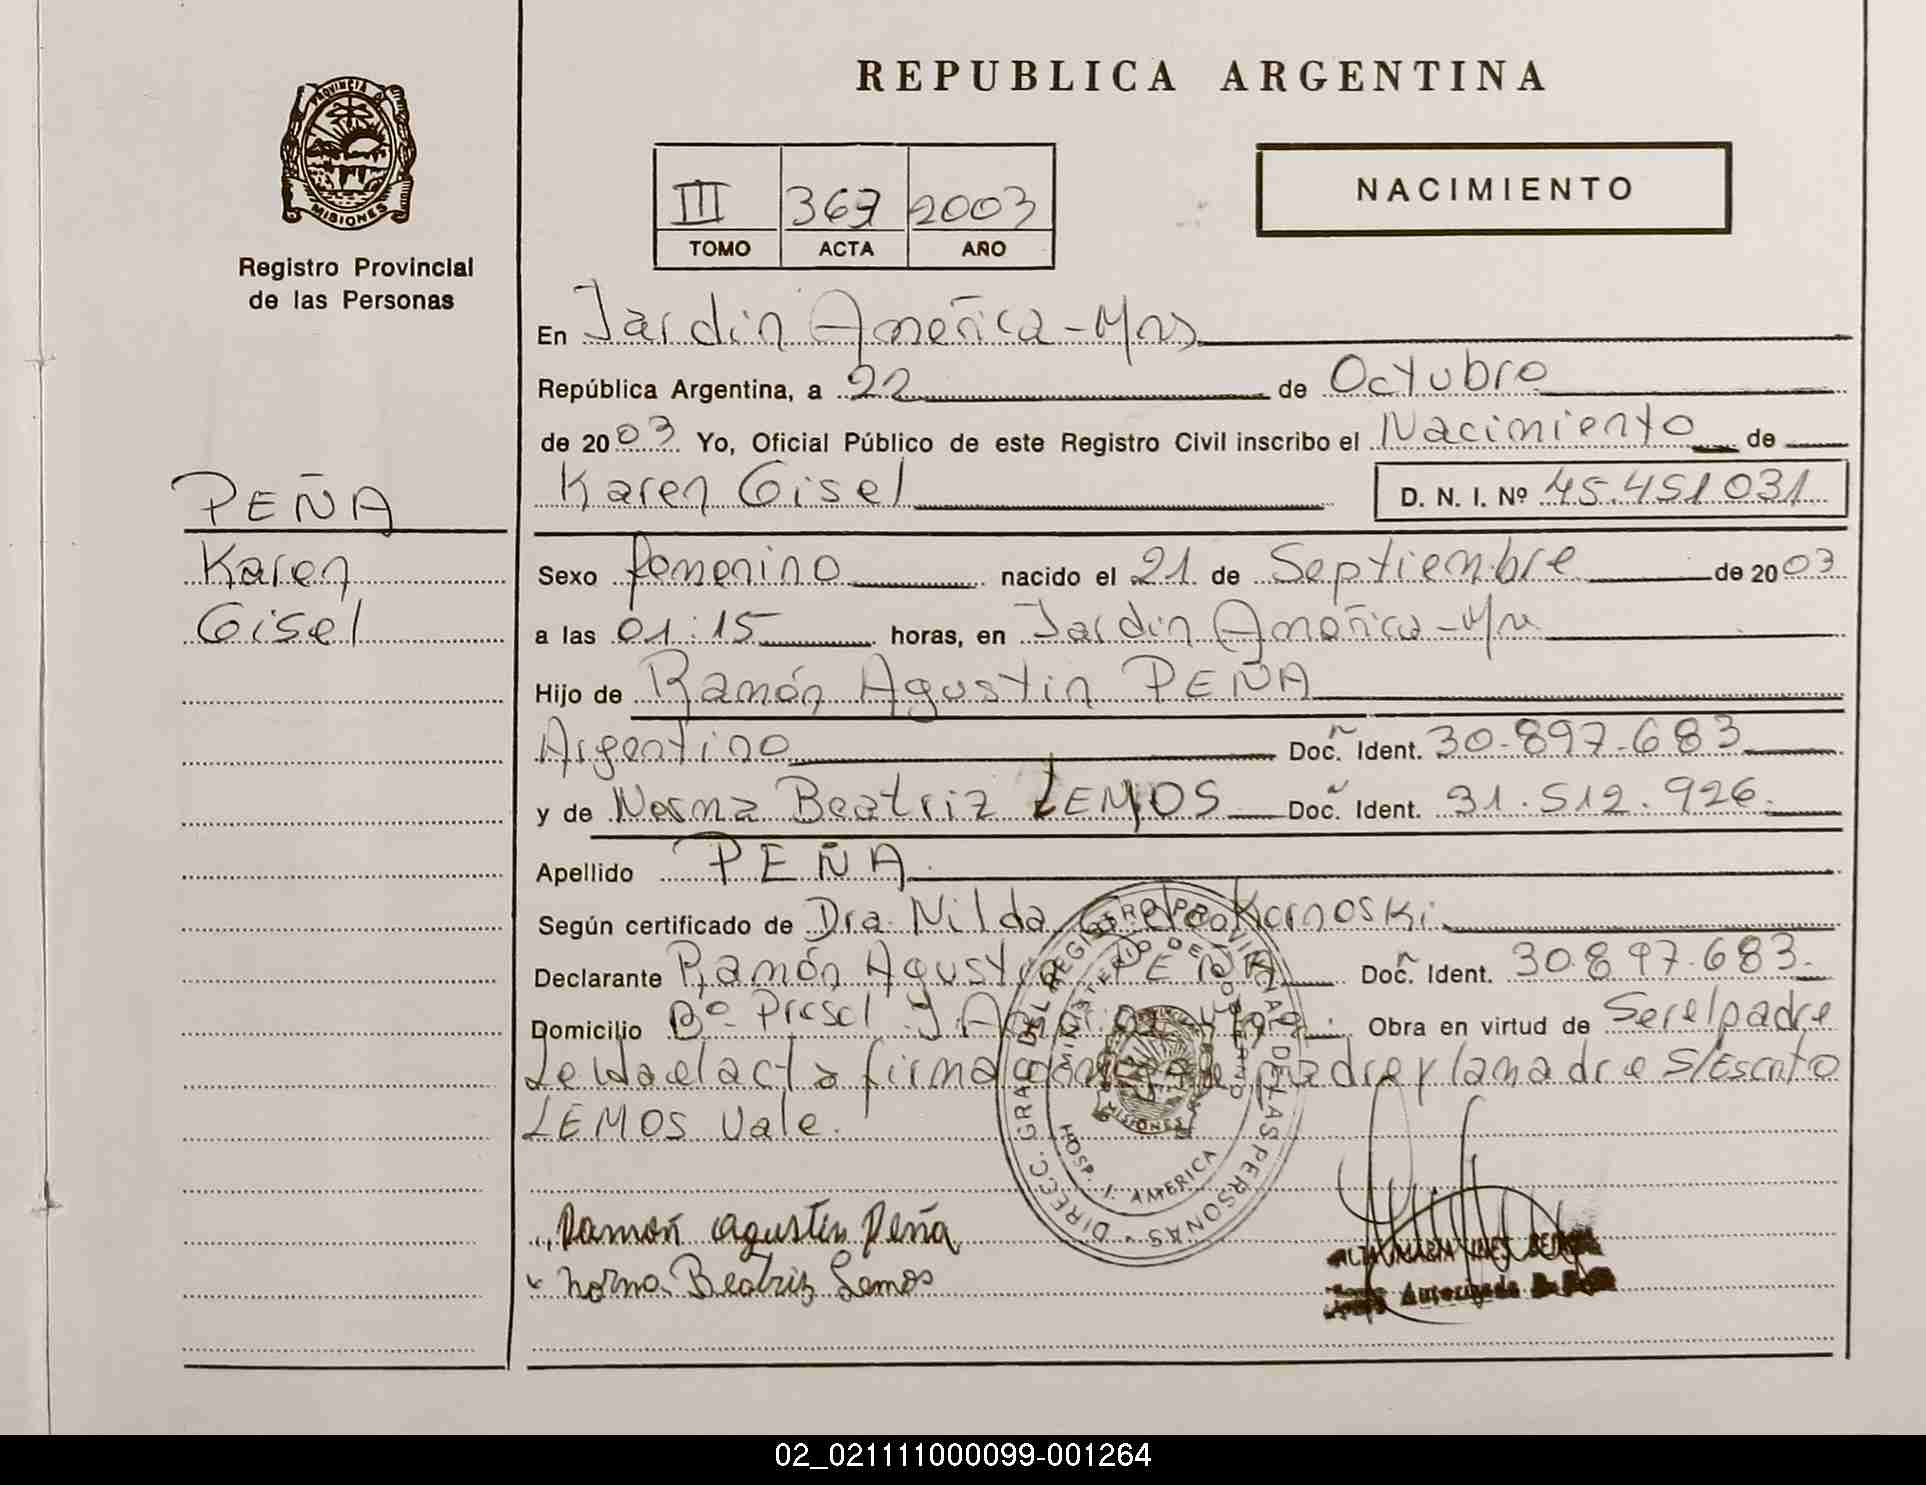 REPUBLICA ARGENTINA
PROVINCIA D
MISIONES
Registro Provincial
de las Personas
III 367 2003
TOMO ACTA AÑO
NACIMIENTO
En Jardin América-Mns
República Argentina, a 22 de Octubre
de 2003 Yo, Oficial Público de este Registro Civil inscribo el Nacimiento de
Karen Gisel D. N. I. Nº 45.451031
PEÑA
Karen
Gisel
Sexo femenino nacido el 21 de Septiembre de 2003
a las 01:15 horas, en Jardin América-Mn
Hijo de Ramón Agustin PEÑA
Argentino Doc. Ident. 30.897.683
y de Norma Beatriz LEMOS Doc. Ident. 31.512.926.
Apellido PEÑA
Según certificado de Dra. Nilda Kornoski
Declarante Ramón Agustin PEÑA Doc. Ident. 30.897.683.
Domicilio Bº Presel J. América Obra en virtud de Ser el padre
Leida el acta firma padre y la madre S/Escrito
LEMOS Vale.
DIRECC. GRAL. DEL REGISTRO PROVINCIAL DE LAS PERSONAS
MINISTERIO DE GOBIERNO
HOSP. J. AMERICA
MISIONES
Ramón Agustín Peña
Norma Beatriz Lemos
Autorizada
02_021111000099-001264